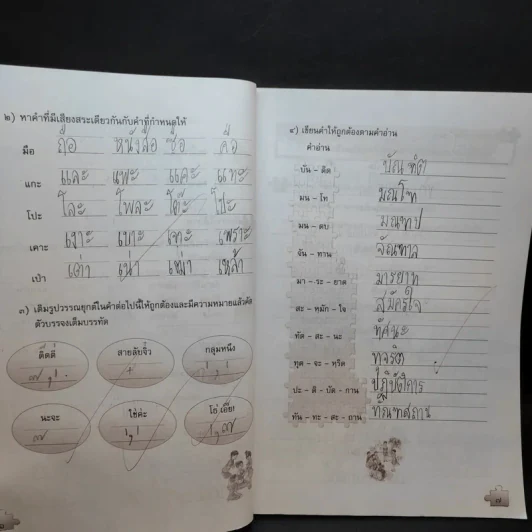 ๒) หาคำที่มีเสียงสระเดียวกันกับคำที่กำหนดให้
มือ ถือ หนังสือ ซื้อ คือ
แกะ และ แพะ แคะ แทะ
โปะ โละ โพละ โต๊ะ โป๊ะ
เคาะ เงาะ เบาะ เจาะ เพราะ
เป๋า เต่า เน่า เฒ่า เหล้า
๓) เติมรูปวรรณยุกต์ในคำต่อไปนี้ให้ถูกต้องและมีความหมายแล้วคัด
ตัวบรรจงเต็มบรรทัด
กลุมหนึง
นะจะ
๔) เขียนคำให้ถูกต้องตามคำอ่าน
คำอ่าน
บัน - ดิด บัณฑิต
มน - โท มณโฑ
มน - ดบ มณฑป
จัน - ทาน จัณฑาล
มา - ระ - ยาด มารยาท
สะ - หมัก - ใจ สมัครใจ
ทัด - สะ - นะ ทัศนะ
ทุด - จะ - หริด ทุจริต
ปะ - ติ - บัด - กาน ปฏิบัติการ
ทัน - ทะ - สะ - ถาน ทัณฑสถาน
๗